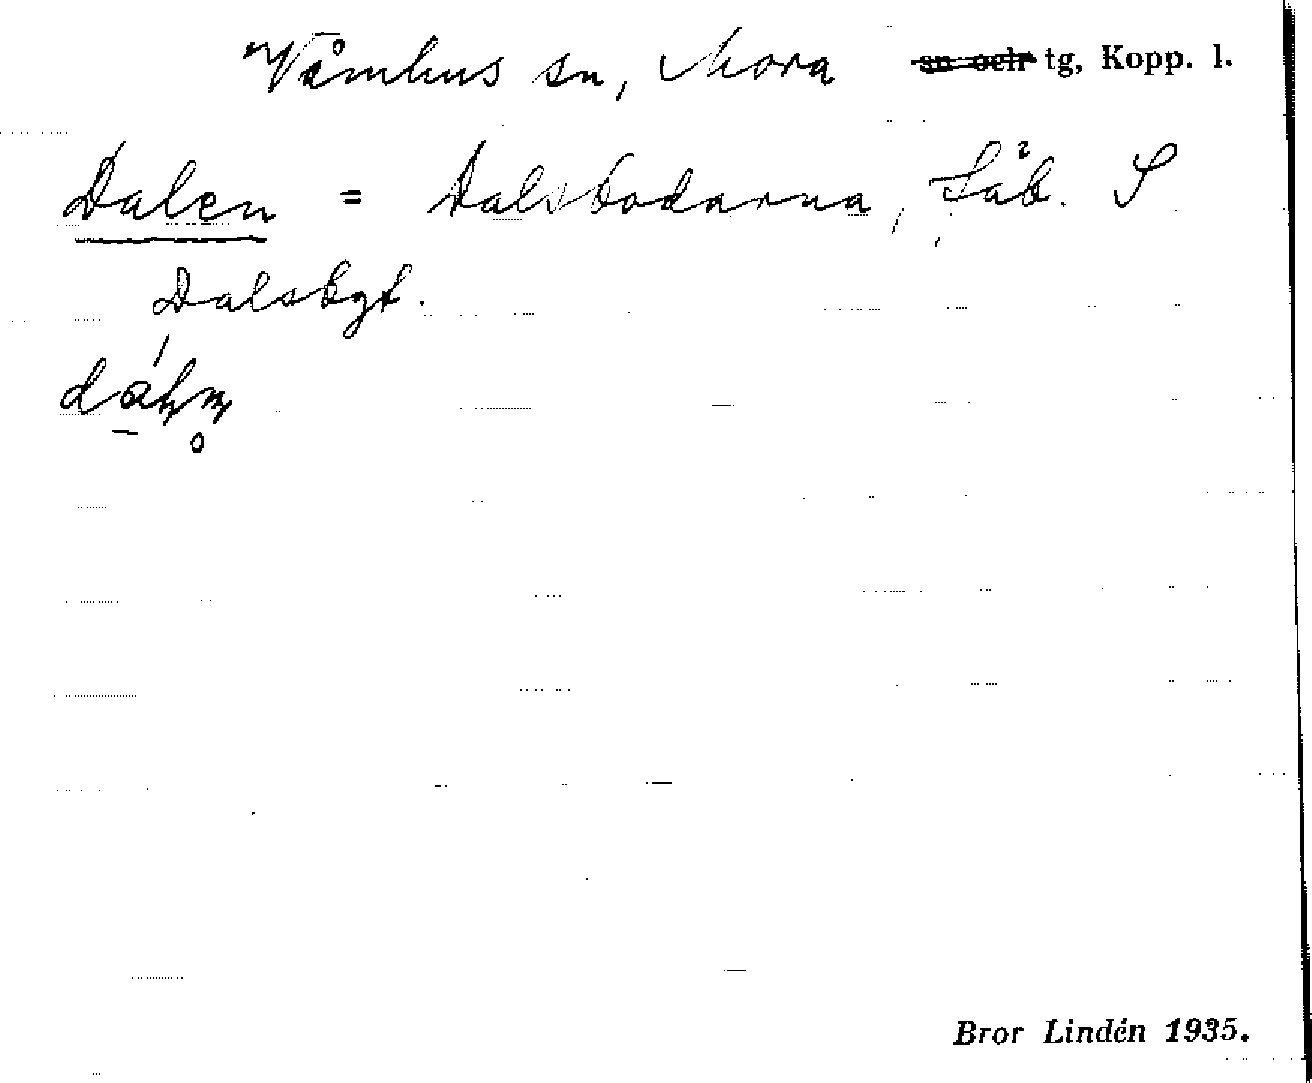 Våmhus sn, Mora sn och tg, Kopp. l.
Dalen = Dalsbodarna, Säb. S
Dalsbgt.
Bror Lindén 1935.